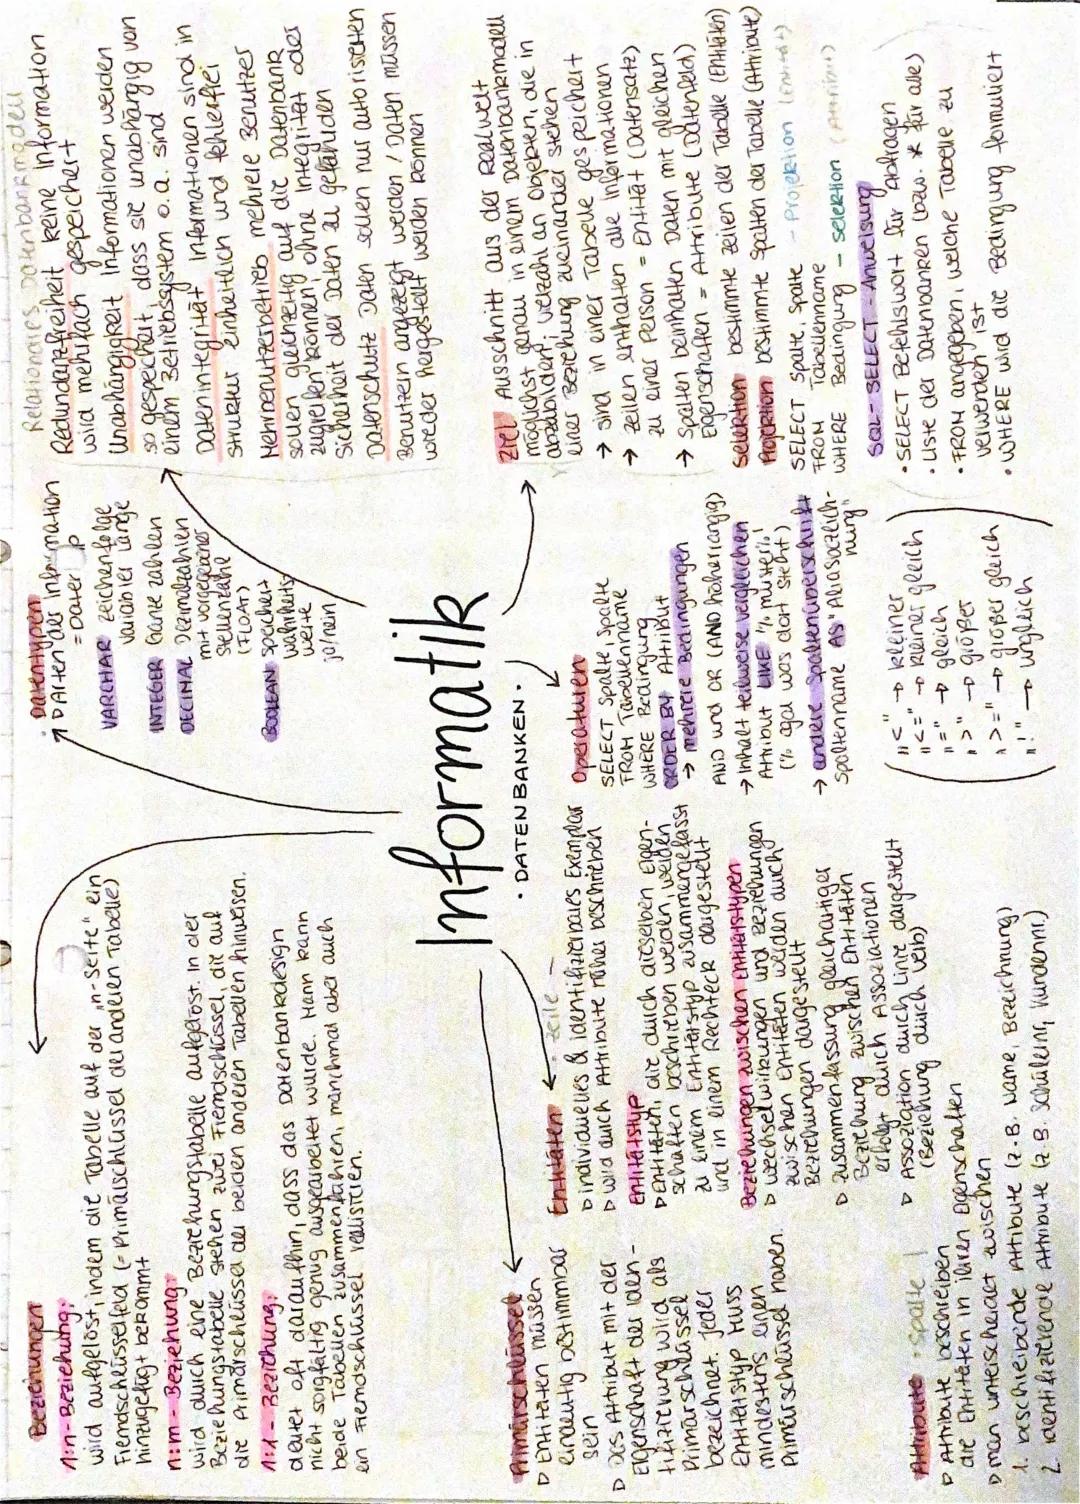 Beziehungen
1:n-Beziehung:
wird aufgelöst, indem die Tabelle auf der „n-Seite" ein
Fremdschlüsselfeld (= Primärschlüssel der anderen Tabelle)
hinzugefügt bekommt
n:m-Beziehung:
wird durch eine Beziehungstabelle aufgelöst. In der
Beziehungstabelle stehen zwei Fremdschlüssel, die auf
die Primärschlüssel der beiden anderen Tabellen hinweisen.
1:1-Beziehung:
deutet oft daraufhin, dass das Datenbankdesign
nicht sorgfältig genug ausgearbeitet wurde. Man kann
beide Tabellen zusammenführen, manchmal aber auch
ein Fremdschlüssel realisieren.
Datentypen
▷ Arten der Information
= Datentyp
VARCHAR Zeichenfolge
variabler Länge
INTEGER Ganze Zahlen
DECIMAL Dezimalzahlen
mit vorgegebener
Stellenzahl
(FLOAT)
BOOLEAN speichert
Wahrheits-
werte
ja/nein
Relationales Datenbankmodell
Redundanzfreiheit keine Information
wird mehrfach gespeichert
Unabhängigkeit Informationen werden
so gespeichert, dass sie unabhängig von
einem Betriebsystem o.a. sind
Datenintegrität Informationen sind in
Struktur einheitlich und fehlerfrei
Mehrnutzerbetrieb mehrere Benutzer
sollen gleichzeitig auf die Datenbank
zugreifen können, ohne Integrität oder
Sicherheit der Daten zu gefährden
Datenschutz Daten sollen nur autorisierten
Benutzern angezeigt werden / Daten müssen
wieder hergestellt werden können
Informatik
· DATENBANKEN ·
Primärschlüssel
▷ Entitäten müssen
eindeutig bestimmbar
sein
▷ Das Attribut mit der
Eigenschaft der Iden-
tifizierung wird als
Primärschlüssel
bezeichnet. Jeder
Entitätstyp muss
mindestens einen
Primärschlüssel haben.
Entitäten · Zeile –
▷ individuelles & identifizierbares Exemplar
▷ wird durch Attribute näher beschrieben
Entitätstyp
▷ Entitäten, die durch dieselben Eigen-
schaften beschrieben werden, werden
zu einem Entitätstyp zusammengefasst
und in einem Rechteck dargestellt
Beziehungen zwischen Entitätstypen
▷ Wechselwirkungen und Beziehungen
zwischen Entitäten werden durch
Beziehungen dargestellt
▷ Zusammenfassung gleichartiger
Beziehung zwischen Entitäten
erfolgt durch Assoziationen
▷ Assoziation durch Linie dargestellt
(Beziehung durch Verb)
Attribute · Spalte |
▷ Attribute beschreiben
die Entitäten in ihren Eigenschaften
▷ man unterscheidet zwischen
1. beschreibende Attribute (z.B. Name, Bezeichnung)
2. identifizierende Attribute (z.B. Schülernr, Kundennr)
Operatoren
SELECT Spalte, Spalte
FROM Tabellenname
WHERE Bedingung
ORDER BY Attribut
→ mehrere Bedingungen
AND und OR (AND höherrangig)
→ Inhalt teilweise vergleichen
Attribut LIKE '% muster%'
(% egal was dort steht)
→ andere Spaltenüberschrift
Spaltenname AS "Aliasbezeich-
nung"
"<" → kleiner
"<=" → kleiner gleich
"=" → gleich
">" → größer
">=" → größer gleich
"!" → ungleich
Ziel Ausschnitt aus der Realwelt
möglichst genau in einem Datenbankmodell
abzubilden; Vielzahl an Objekten, die in
einer Beziehung zueinander stehen
→ sind in einer Tabelle gespeichert
→ Zeilen enthalten alle Informationen
zu einer Person = Entität (Datensatz)
→ Spalten beinhalten Daten mit gleichen
Eigenschaften = Attribute (Datenfeld)
Selektion bestimmte Zeilen der Tabelle (Entitäten)
Projektion bestimmte Spalten der Tabelle (Attribute)
SELECT Spalte, Spalte - Projektion
FROM Tabellenname
WHERE Bedingung - Selektion (Attribut)
SQL - SELECT - Anweisung
· SELECT Befehlswort für Abfragen
· Liste der Datenbanken (bzw. * für alle)
· FROM angegeben, welche Tabelle zu
verwenden ist
· WHERE wird die Bedingung formuliert